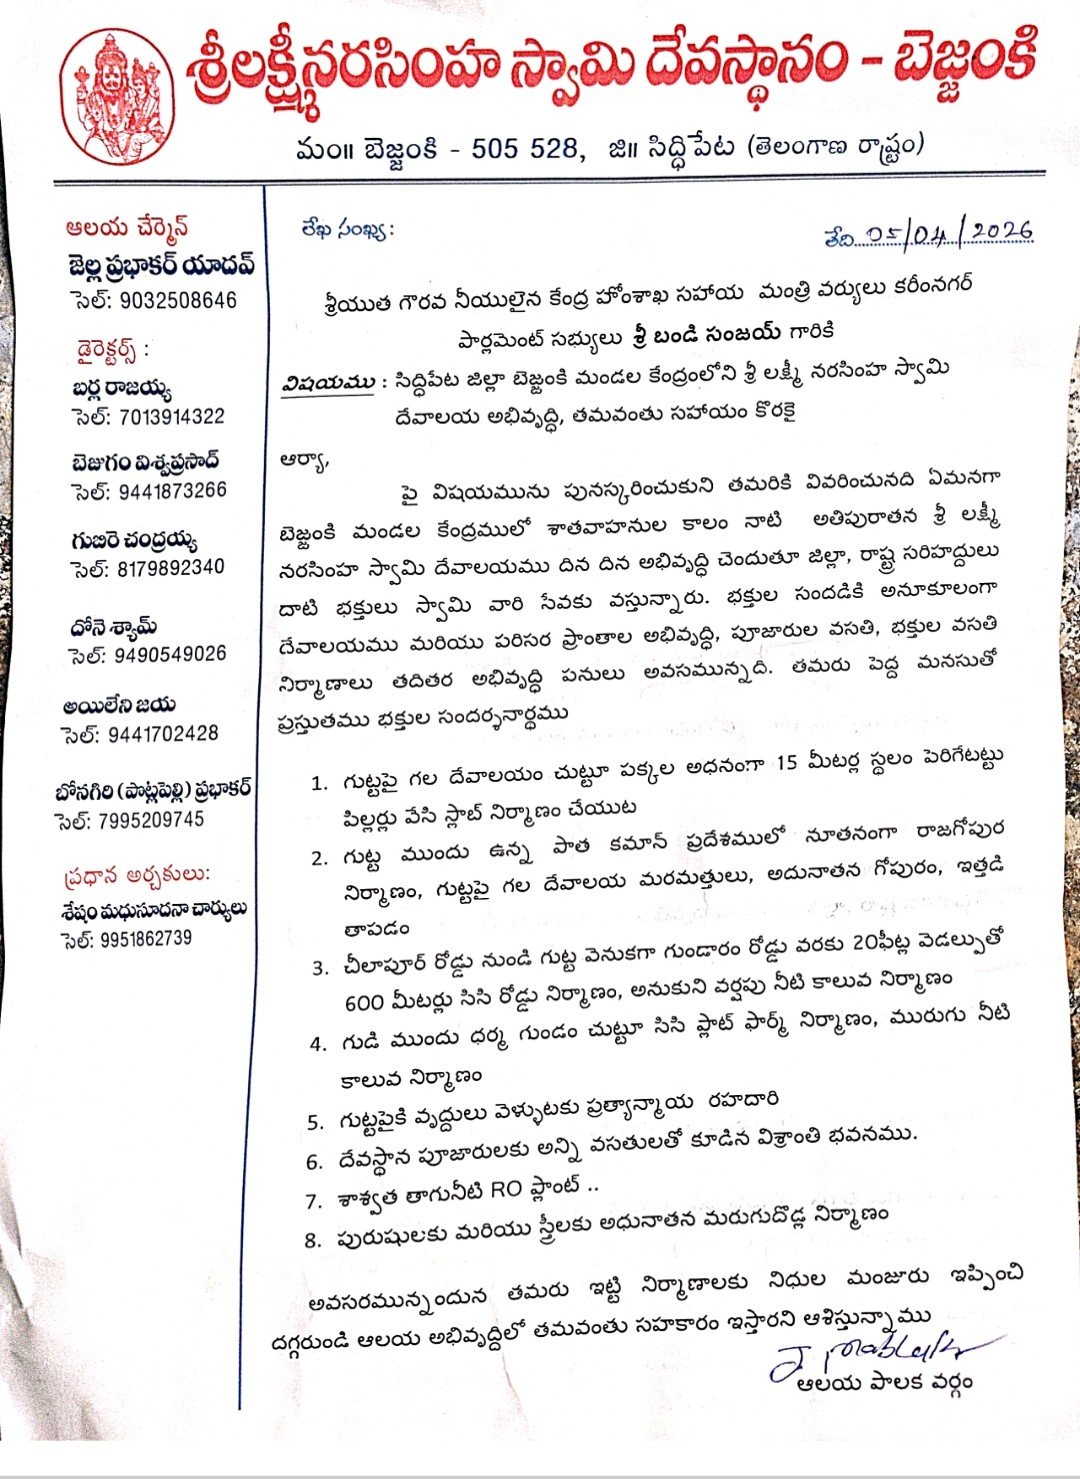 శ్రీలక్ష్మీనరసింహ స్వామి దేవస్థానం - బెజ్జంకి
మం॥ బెజ్జంకి - 505 528, జి॥ సిద్ధిపేట (తెలంగాణ రాష్ట్రం)
ఆలయ చేర్మెన్
జెల్ల ప్రభాకర్ యాదవ్
సెల్: 9032508646
డైరెక్టర్స్ :
బర్ల రాజయ్య
సెల్: 7013914322
బెజుగం విశ్వప్రసాద్
సెల్: 9441873266
గుబిరె చంద్రయ్య
సెల్: 8179892340
దోనె శ్యామ్
సెల్: 9490549026
అయిలేని జయ
సెల్: 9441702428
బోనగిరి (పొట్లపెల్లి) ప్రభాకర్
సెల్: 7995209745
ప్రధాన అర్చకులు:
శేషం మధుసూదనా చార్యులు
సెల్: 9951862739
లేఖ సంఖ్య:
తేది..05/04/2026
శ్రీయుత గౌరవ నీయులైన కేంద్ర హోంశాఖ సహాయ మంత్రి వర్యులు కరీంనగర్
పార్లమెంట్ సభ్యులు శ్రీ బండి సంజయ్ గారికి
విషయము : సిద్ధిపేట జిల్లా బెజ్జంకి మండల కేంద్రంలోని శ్రీ లక్ష్మీ నరసింహ స్వామి
దేవాలయ అభివృద్ధి, తమవంతు సహాయం కొరకై
ఆర్యా,
పై విషయమును పునస్కరించుకుని తమరికి వివరించునది ఏమనగా
బెజ్జంకి మండల కేంద్రములో శాతవాహనుల కాలం నాటి అతిపురాతన శ్రీ లక్ష్మీ
నరసింహ స్వామి దేవాలయము దిన దిన అభివృద్ధి చెందుతూ జిల్లా, రాష్ట్ర సరిహద్దులు
దాటి భక్తులు స్వామి వారి సేవకు వస్తున్నారు. భక్తుల సందడికి అనూకూలంగా
దేవాలయము మరియు పరిసర ప్రాంతాల అభివృద్ధి, పూజారుల వసతి, భక్తుల వసతి
నిర్మాణాలు తదితర అభివృద్ధి పనులు అవసమున్నది. తమరు పెద్ద మనసుతో
ప్రస్తుతము భక్తుల సందర్శనార్థము
1. గుట్టపై గల దేవాలయం చుట్టూ పక్కల అధనంగా 15 మీటర్ల స్థలం పెరిగేటట్టు
పిల్లర్లు వేసి స్లాబ్ నిర్మాణం చేయుట
2. గుట్ట ముందు ఉన్న పాత కమాన్ ప్రదేశములో నూతనంగా రాజగోపుర
నిర్మాణం, గుట్టపై గల దేవాలయ మరమత్తులు, అదునాతన గోపురం, ఇత్తడి
తాపడం
3. చీలాపూర్ రోడ్డు నుండి గుట్ట వెనుకగా గుండారం రోడ్డు వరకు 20ఫీట్ల వెడల్పుతో
600 మీటర్లు సిసి రోడ్డు నిర్మాణం, అనుకుని వర్షపు నీటి కాలువ నిర్మాణం
4. గుడి ముందు ధర్మ గుండం చుట్టూ సిసి ప్లాట్ ఫార్మ్ నిర్మాణం, మురుగు నీటి
కాలువ నిర్మాణం
5. గుట్టపైకి వృద్దులు వెళ్ళుటకు ప్రత్యాన్మాయ రహదారి
6. దేవస్థాన పూజారులకు అన్ని వసతులతో కూడిన విశ్రాంతి భవనము.
7. శాశ్వత తాగునీటి RO ప్లాంట్ ..
8. పురుషులకు మరియు స్త్రీలకు అధునాతన మరుగుదొడ్ల నిర్మాణం
అవసరమున్నందున తమరు ఇట్టి నిర్మాణాలకు నిధుల మంజూరు ఇప్పించి
దగ్గరుండి ఆలయ అభివృద్దిలో తమవంతు సహకారం ఇస్తారని ఆశిస్తున్నాము
J. Prabhakar
ఆలయ పాలక వర్గం